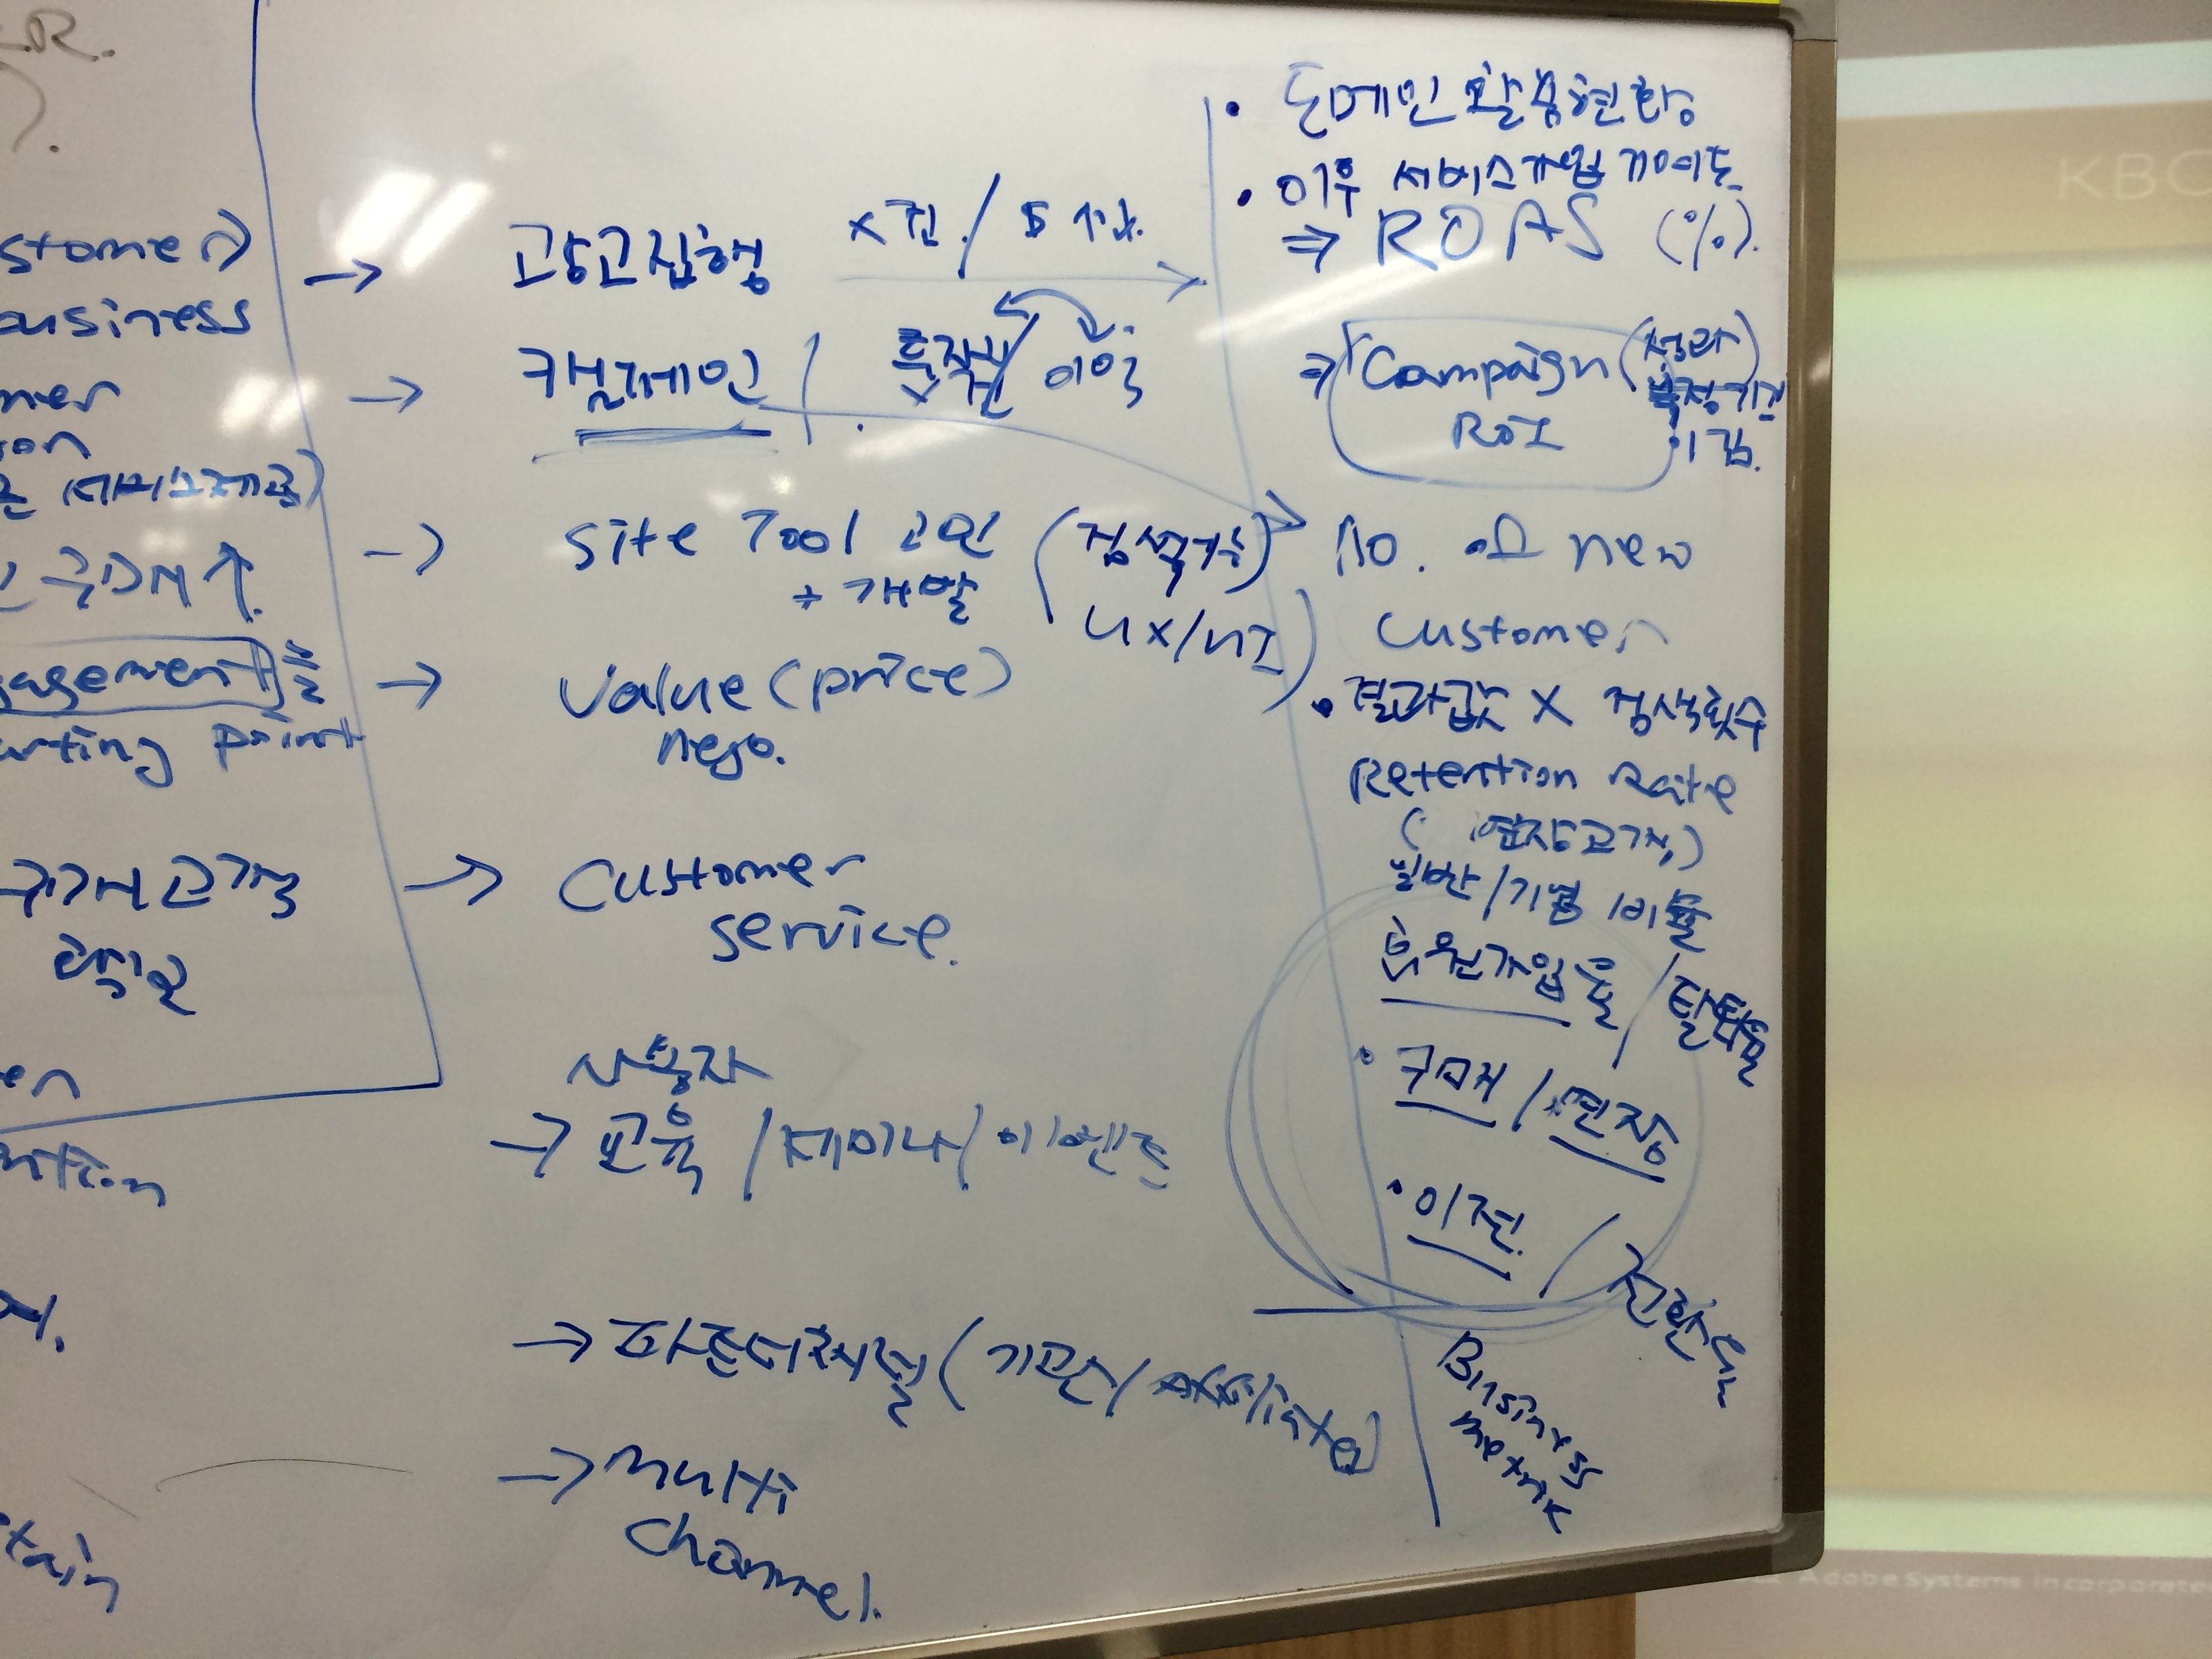 R.
stomer)
business
mer
on
서비스제공)
DM↑
agement를
rting point
구매고객
확인
en
ntion
tain
→ 광고집행
→ 캠페인 / 이익
→ Site Tool 고민
+ 개발
(검색기능)
UX/UI)
→ Value (price)
nego.
→ Customer
service.
사용자
→ 교육 / 세미나 / 이벤트
→ 파트너채널 (기존 /
→ Multi
Channel.
• 도메인 활용현황
• 이후 서비스가입 기여도
⇒ ROAS (%).
⇒ Campaign
ROI
측정기간
No. of new
Customer
• 결과값 X 검색횟수
Retention Rate
( 연장고객)
일반/기업 비율
회원가입율 / 탈퇴율
• 구매 / 연장
• 이전 / 전환율
Business
metric
KBC
Adobe Systems Incorporate